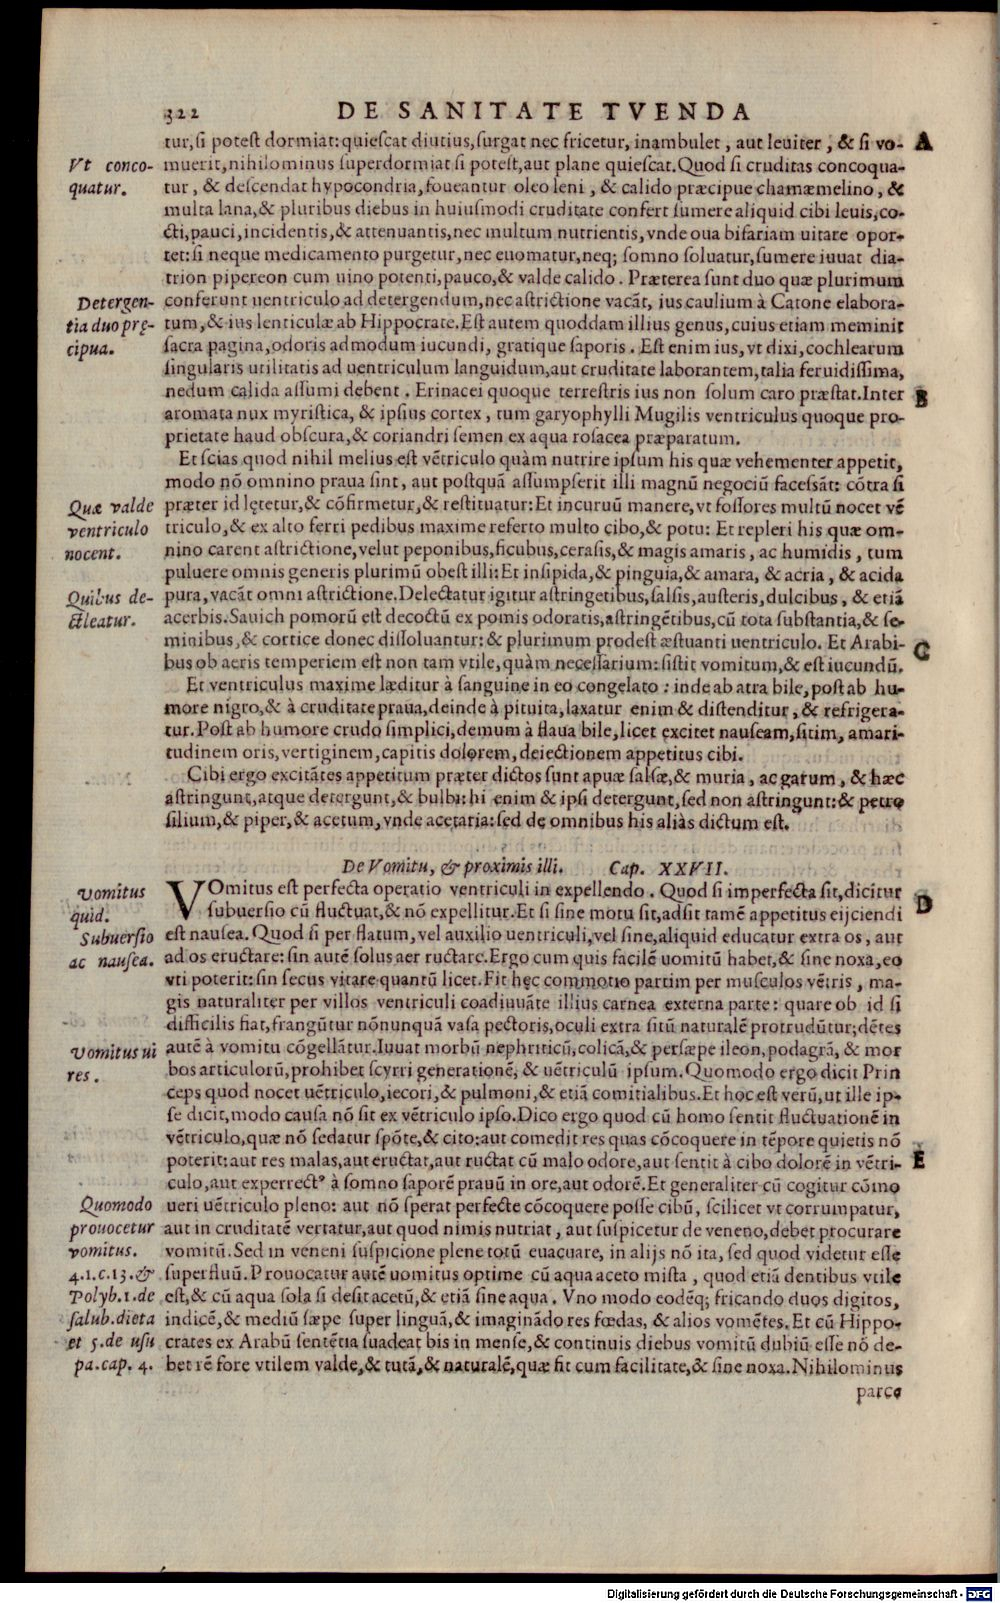 322 DE SANITATE TVENDA
tur, si potest dormiat: quiescat diutius, surgat nec fricetur, inambulet, aut leuiter, & si vo- A
Vt conco- muerit, nihilominus superdormiat si potest, aut plane quiescat. Quod si cruditas concoqua-
quatur. tur, & descendat hypocondria, foueantur oleo leni, & calido præcipue chamæmelino, &
multa lana, & pluribus diebus in huiusmodi cruditate confert sumere aliquid cibi leuis, co-
cti, pauci, incidentis, & attenuantis, nec multum nutrientis, vnde oua bifariam uitare opor-
tet: si neque medicamento purgetur, nec euomatur, neq; somno soluatur, sumere iuuat dia-
trion pipereon cum uino potenti, pauco, & valde calido. Præterea sunt duo quæ plurimum
Detergen- conferunt uentriculo ad detergendum, nec astrictione vacãt, ius caulium à Catone elabora-
tia duo prę- tum, & ius lenticulæ ab Hippocrate. Est autem quoddam illius genus, cuius etiam meminit
cipua. sacra pagina, odoris admodum iucundi, gratique saporis. Est enim ius, vt dixi, cochlearum
singularis utilitatis ad uentriculum languidum, aut cruditate laborantem, talia feruidissima,
nedum calida assumi debent. Erinacei quoque terrestris ius non solum caro præstat. Inter B
aromata nux myristica, & ipsius cortex, tum garyophylli Mugilis ventriculus quoque pro-
prietate haud obscura, & coriandri semen ex aqua rosacea præparatum.
Et scias quod nihil melius est vẽtriculo quàm nutrire ipsum his quæ vehementer appetit,
modo nõ omnino praua sint, aut postquã assumpserit illi magnũ negociũ facessãt: cõtra si
Quæ valde præter id lętetur, & cõfirmetur, & restituatur: Et incuruũ manere, vt fossores multũ nocet vẽ
ventriculo triculo, & ex alto ferri pedibus maxime referto multo cibo, & potu: Et repleri his quæ om-
nocent. nino carent astrictione, velut peponibus, ficubus, cerasis, & magis amaris, ac humidis, tum
puluere omnis generis plurimũ obest illi: Et insipida, & pinguia, & amara, & acria, & acida
Quibus de- pura, vacãt omni astrictione. Delectatur igitur astringẽtibus, salsis, austeris, dulcibus, & etiã
ctleatur. acerbis. Sauich pomorũ est decoctũ ex pomis odoratis, astringẽtibus, cũ tota substantia, & se-
minibus, & cortice donec dissoluantur: & plurimum prodest æstuanti uentriculo. Et Arabi- C
bus ob aeris temperiem est non tam vtile, quàm necessarium: sistit vomitum, & est iucundũ.
Et ventriculus maxime læditur à sanguine in eo congelato: inde ab atra bile, post ab hu-
more nigro, & à cruditate praua, deinde à pituita, laxatur enim & distenditur, & refrigera-
tur. Post ab humore crudo simplici, demum à flaua bile, licet excitet nauseam, sitim, amari-
tudinem oris, vertiginem, capitis dolorem, deiectionem appetitus cibi.
Cibi ergo excitãtes appetitum præter dictos sunt apuæ salsæ, & muria, ac garum, & hæc
astringunt, atque detergunt, & bulbi: hi enim & ipsi detergunt, sed non astringunt: & petro
silium, & piper, & acetum, vnde acetaria: sed de omnibus his aliàs dictum est.
De Vomitu, & proximis illi. Cap. XXVII.
Vomitus VOmitus est perfecta operatio ventriculi in expellendo. Quod si imperfecta sit, dicitur
quid. subuersio cũ fluctuat, & nõ expellitur. Et si sine motu sit, adsit tamẽ appetitus eijciendi D
Subuersio est nausea. Quod si per flatum, vel auxilio uentriculi, vel sine, aliquid educatur extra os, aut
ac nausea. ad os eructare: sin autẽ solus aer ructare. Ergo cum quis facilẽ uomitũ habet, & sine noxa, eo
vti poterit: sin secus vitare quantũ licet. Fit hęc commotio partim per musculos vẽtris, ma-
gis naturaliter per villos ventriculi coadiuuãte illius carnea externa parte: quare ob id si
difficilis fiat, frangũtur nõnunquã vasa pectoris, oculi extra sitũ naturalẽ protrudũtur; dẽtes
Vomitus ui autẽ à vomitu cõgellãtur. Iuuat morbũ nephriticũ, colicã, & persæpe ileon, podagrã, & mor
res. bos articulorũ, prohibet scyrri generationẽ, & uẽtriculũ ipsum. Quomodo ergo dicit Prin
ceps quod nocet uẽtriculo, iecori, & pulmoni, & etiã comitialibus. Et hoc est verũ, ut ille ip-
se dicit, modo causa nõ sit ex vẽtriculo ipso. Dico ergo quod cũ homo sentit fluctuationẽ in
vẽtriculo, quæ nõ sedatur spõte, & cito: aut comedit res quas cõcoquere in tẽpore quietis nõ
poterit: aut res malas, aut eructat, aut ructat cũ malo odore, aut sentit à cibo dolorẽ in vẽtri- E
culo, aut experrectꝰ à somno saporẽ prauũ in ore, aut odorẽ. Et generaliter cũ cogitur cõmo
Quomodo ueri uẽtriculo pleno: aut nõ sperat perfecte cõcoquere posse cibũ, scilicet vt corrumpatur,
prouocetur aut in cruditatẽ vertatur, aut quod nimis nutriat, aut suspicetur de veneno, debet procurare
vomitus. vomitũ. Sed in veneni suspicione plene totũ euacuare, in alijs nõ ita, sed quod videtur esse
4.1.c.13.& superfluũ. Prouocatur autẽ uomitus optime cũ aqua aceto mista, quod etiã dentibus vtile
Polyb.1.de est, & cũ aqua sola si desit acetũ, & etiã sine aqua. Vno modo eodẽq; fricando duos digitos,
salub.dieta indicẽ, & mediũ sæpe super linguã, & imaginãdo res fœdas, & alios vomẽtes. Et cũ Hippo-
et 5.de usu crates ex Arabũ sentẽtia suadeat bis in mense, & continuis diebus vomitũ dubiũ esse nõ de-
pa.cap. 4. bet rẽ fore vtilem valde, & tutã, & naturalẽ, quæ fit cum facilitate, & sine noxa. Nihilominus
parce
Digitalisierung gefördert durch die Deutsche Forschungsgemeinschaft - DFG